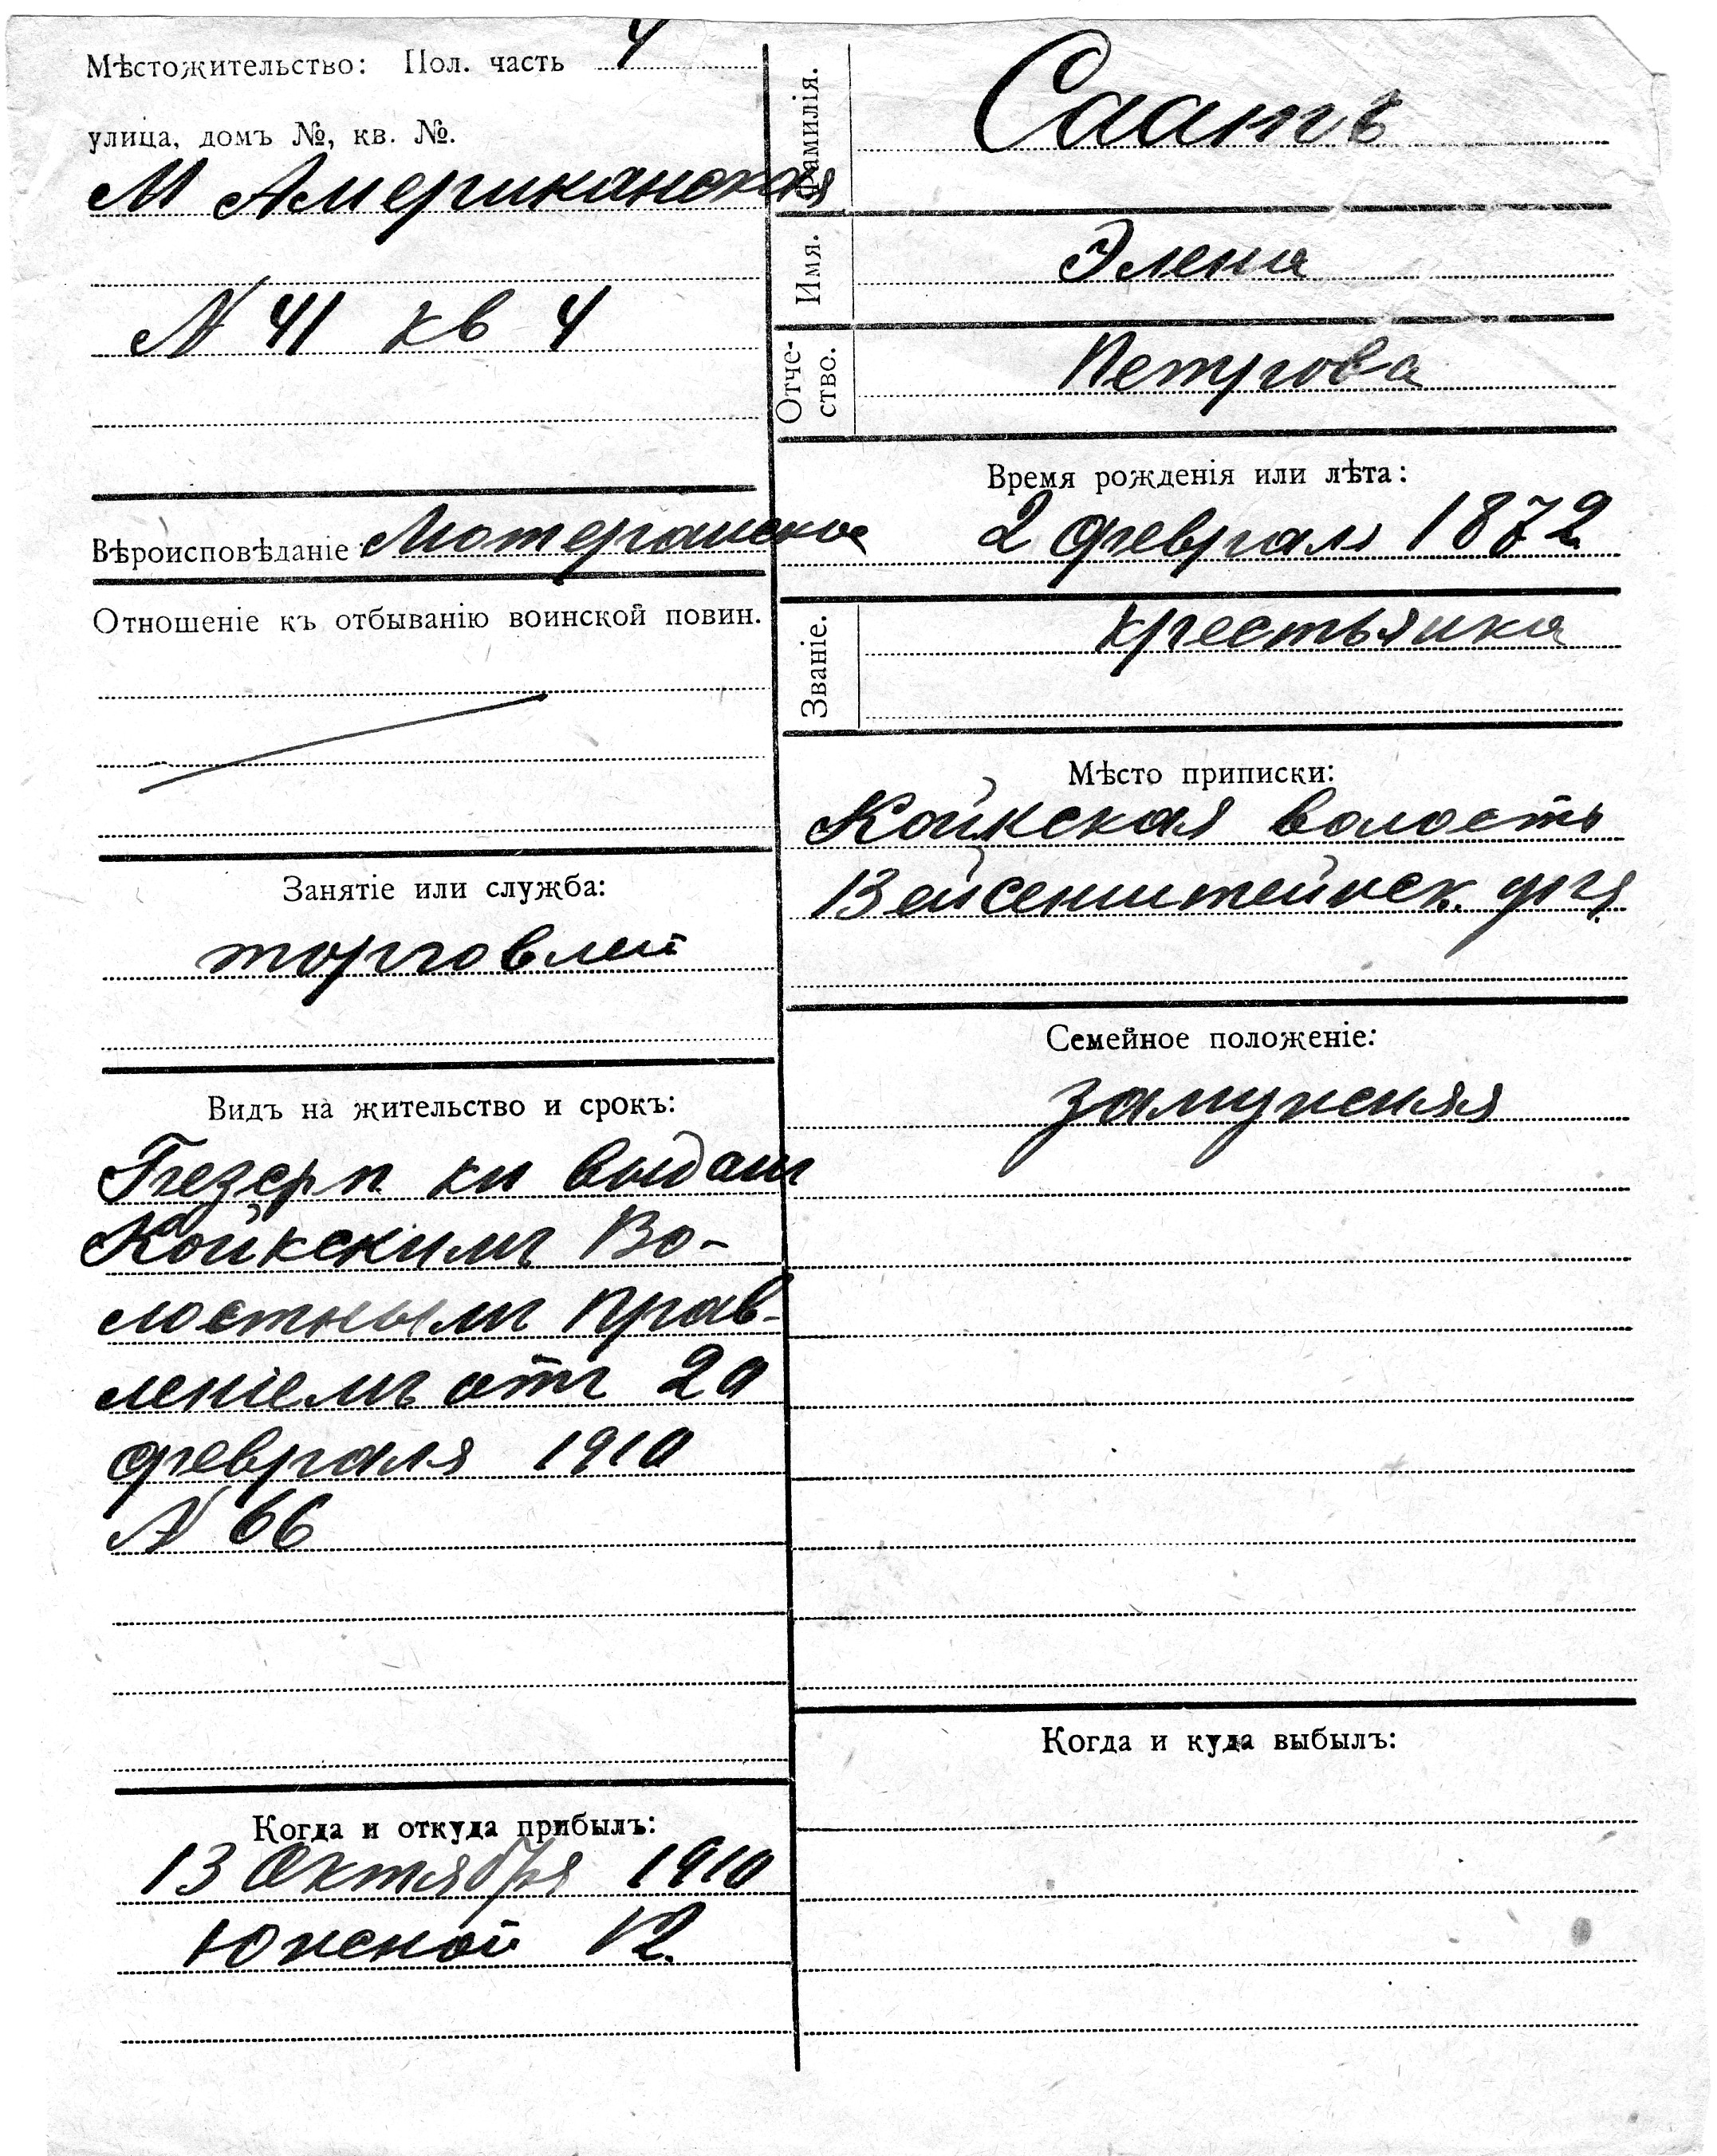 Мѣстожительство: Пол. часть 4
улица, домъ №, кв. №.
М Американская
N 41 кв 4
Вѣроисповѣданіе Лютеранское
Отношеніе къ отбыванію воинской повин.
Занятіе или служба:
торговлей
Видъ на жительство и срокъ:
кн выдан
Койкскимъ Во-
лостнымъ Прав-
леніемъ отъ 20
февраля 1910
N 66
Когда и откуда прибылъ:
13 Октября 1910
Южной 12.
Фамилія. Саатъ
Имя. Элена
Отче-
ство. Петрова
Время рожденія или лѣта:
2 февраля 1872
Званіе. крестьянка
Мѣсто приписки:
Койкская волость
Вейсенштейнск.
Семейное положеніе:
замужняя
Когда и куда выбылъ: